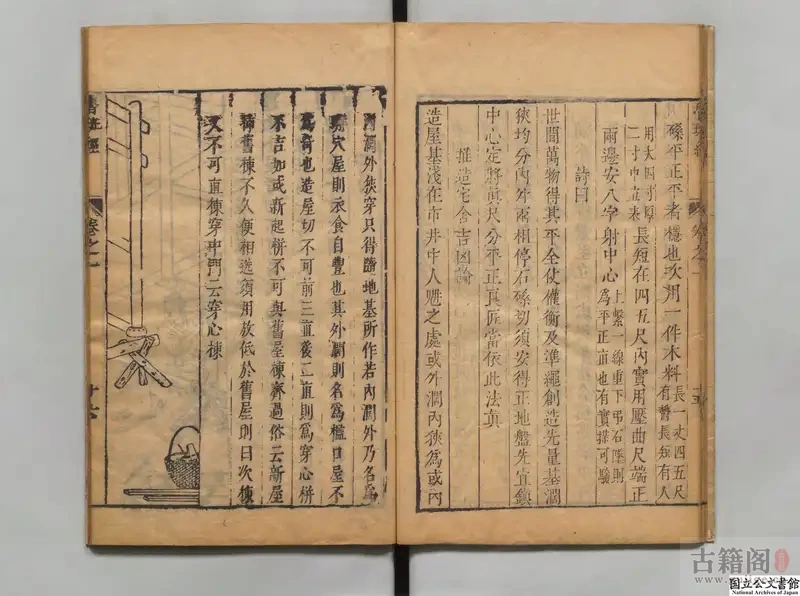 磉平正平者穩也次用一件木料長一丈四五尺有長短有人
用大四寸厚二寸中立表長短在四五尺內實用壓曲尺端正
兩邊安八字射中心上繫一線重下吊石墜則為平正直也有實樣可驗
詩曰
世間萬物得其平全仗權衡及準繩創造先量基濶
狹均分內外兩相停石磉切須安得正地盤先宜鎮
中心定將前尺分平正良匠當依此法真
推造宅舍吉凶論
造屋基淺在市井中人魁之處或外濶內狹為或內
濶外狹穿只得隨地基所作若內濶外乃名為
穴屋則衣食自豐也其外濶則名為檻口屋不
為奇也造屋切不可前三直後二直則為穿心栟
不吉如或新起栟不可與舊屋棟齊過俗云新屋
舊棟不久便相送須用放低於舊屋則曰次棟
又不可直棟穿中門云穿心棟
魯班經
卷之一
十六
古籍阁
国立公文書館
National Archives of Japan